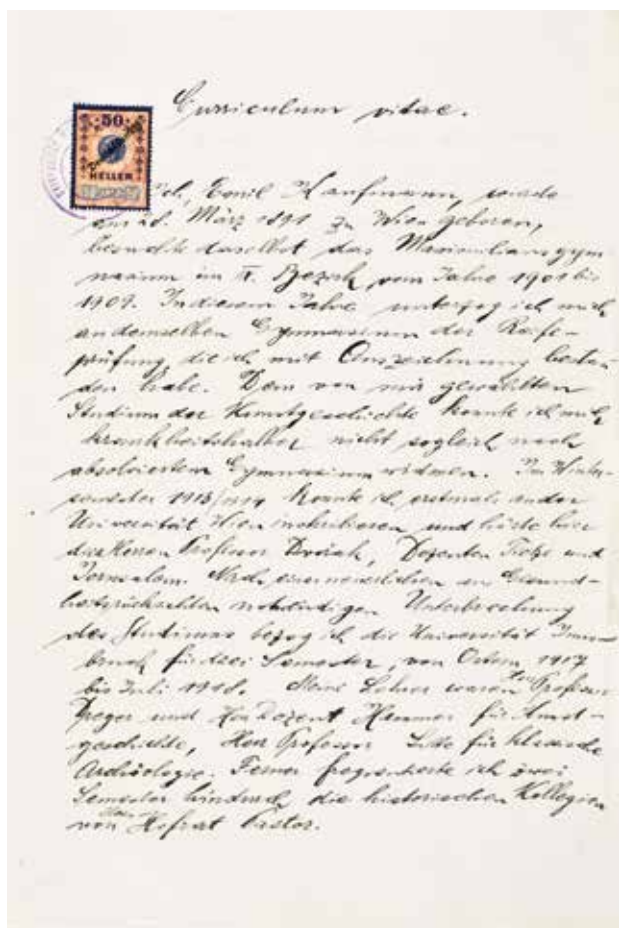 Curriculum vitae.
50
HELLER
Ich, Emil Kaufmann, wurde
am 28. März 1891 zu Wien geboren,
besuchte daselbst das Maximiliansgym-
nasium im IX. Bezirk vom Jahre 1901 bis
1909. In diesem Jahre unterzog ich mich
an demselben Gymnasium der Reife-
prüfung, die ich mit Auszeichnung bestan-
den habe. Dem von mir gewählten
Studium der Kunstgeschichte konnte ich mich
krankheitshalber nicht sogleich nach
absolviertem Gymnasium widmen. Im Winter-
semester 1913/1914 konnte ich erstmals an der
Universität Wien inskribieren und hörte hier
die Herren Professor Dvořák, Dozenten Tietze und
Jerusalem. Nach einer neuerlichen aus Gesund-
heitsrücksichten notwendigen Unterbrechung
des Studiums bezog ich die Universität Inns-
bruck für drei Semester, von Ostern 1917
bis Juli 1918. Meine Lehrer waren Herr Professor
Dreger und Herr Dozent Hammer für Kunst-
geschichte, Herr Professor für klassische
Archäologie. Ferner frequentierte ich zwei
Semester hindurch die historischen Kollegien
von Herrn Hofrat Pastor.